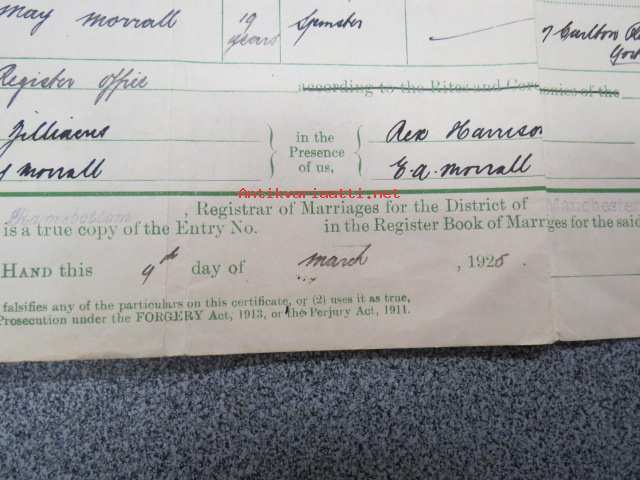 May Morrall 19 years Spinster 7 Carlton
Register office according to the Rites and Ceremonies of the
Zilliacus in the Presence of us, Rex Harrison
Morrall E. A. Morrall
Antikvariaatti.net
, Registrar of Marriages for the District of Manchester
is a true copy of the Entry No. in the Register Book of Marriages for the said
HAND this 9th day of March , 1925 .
falsifies any of the particulars on this certificate, or (2) uses it as true,
Prosecution under the FORGERY Act, 1913, or the Perjury Act, 1911.